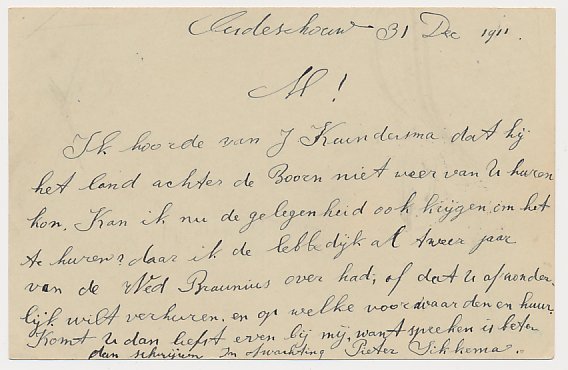 Oudeschouw 31 Dec 1911.
M!
Ik hoorde van J Kuindersma dat hij
het land achter de Boorn niet weer van U huren
kon. Kan ik nu de gelegenheid ook krijgen om het
te huren? daar ik de lebbedijk al tweer jaar
van de Wed Braunius over had, of dat U afzonder-
lijk wilt verhuren, en op welke voorwaarden en huur.
Komt U dan liefst even bij mij, want spreeken is beter
dan schrijven In afwachting Pieter Sikkema.